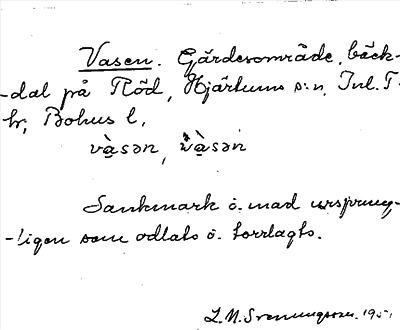 Vasen. Gärdesområde, bäck-
-dal på Röd, Hjärtums s:n, Inl. T.
hr, Bohus l,
và̱sən, và̱sən
Sankmark o. mad ursprung-
-ligen som odlats o. torrlagts.
L.N. Svenungsson. 1951